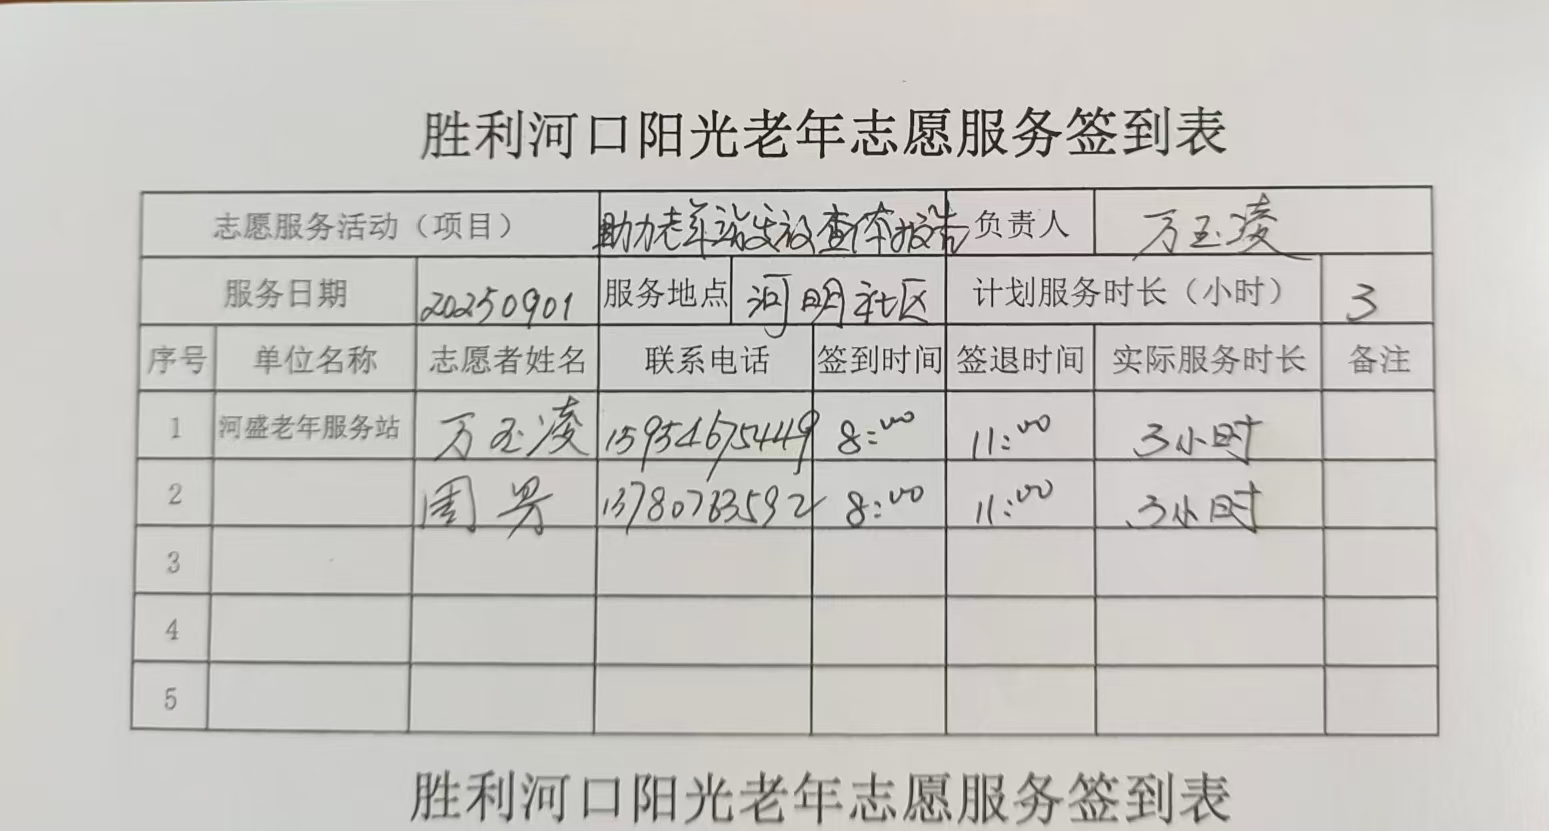 胜利河口阳光老年志愿服务签到表
志愿服务活动（项目） 助力老年站发放查体报告 负责人 万玉凌
服务日期 20250901 服务地点 河明社区 计划服务时长（小时） 3
序号 单位名称 志愿者姓名 联系电话 签到时间 签退时间 实际服务时长 备注
1 河盛老年服务站 万玉凌 15954675449 8:00 11:00 3小时
2 周 13780763592 8:00 11:00 3小时
3
4
5
胜利河口阳光老年志愿服务签到表